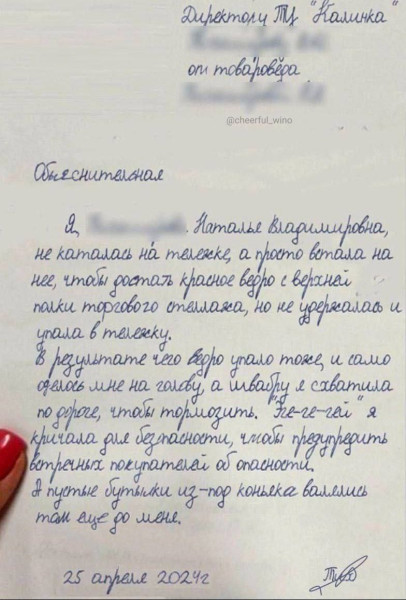 Директору ТЦ "Калинка"
от товароведа
@cheerful_wino
Объяснительная
Я, Наталья Владимировна,
не каталась на тележке, а просто встала на
нее, чтобы достать красное ведро с верхней
полки торгового стеллажа, но не удержалась и
упала в тележку.
В результате чего ведро упало тоже, и само
оделось мне на голову, а швабру я схватила
по дороге, чтобы тормозить. "Эге-ге-гей" я
кричала для безпасности, чтобы предупредить
встречных покупателей об опасности.
А пустые бутылки из-под коньяка валялись
там еще до меня.
25 апреля 2024г